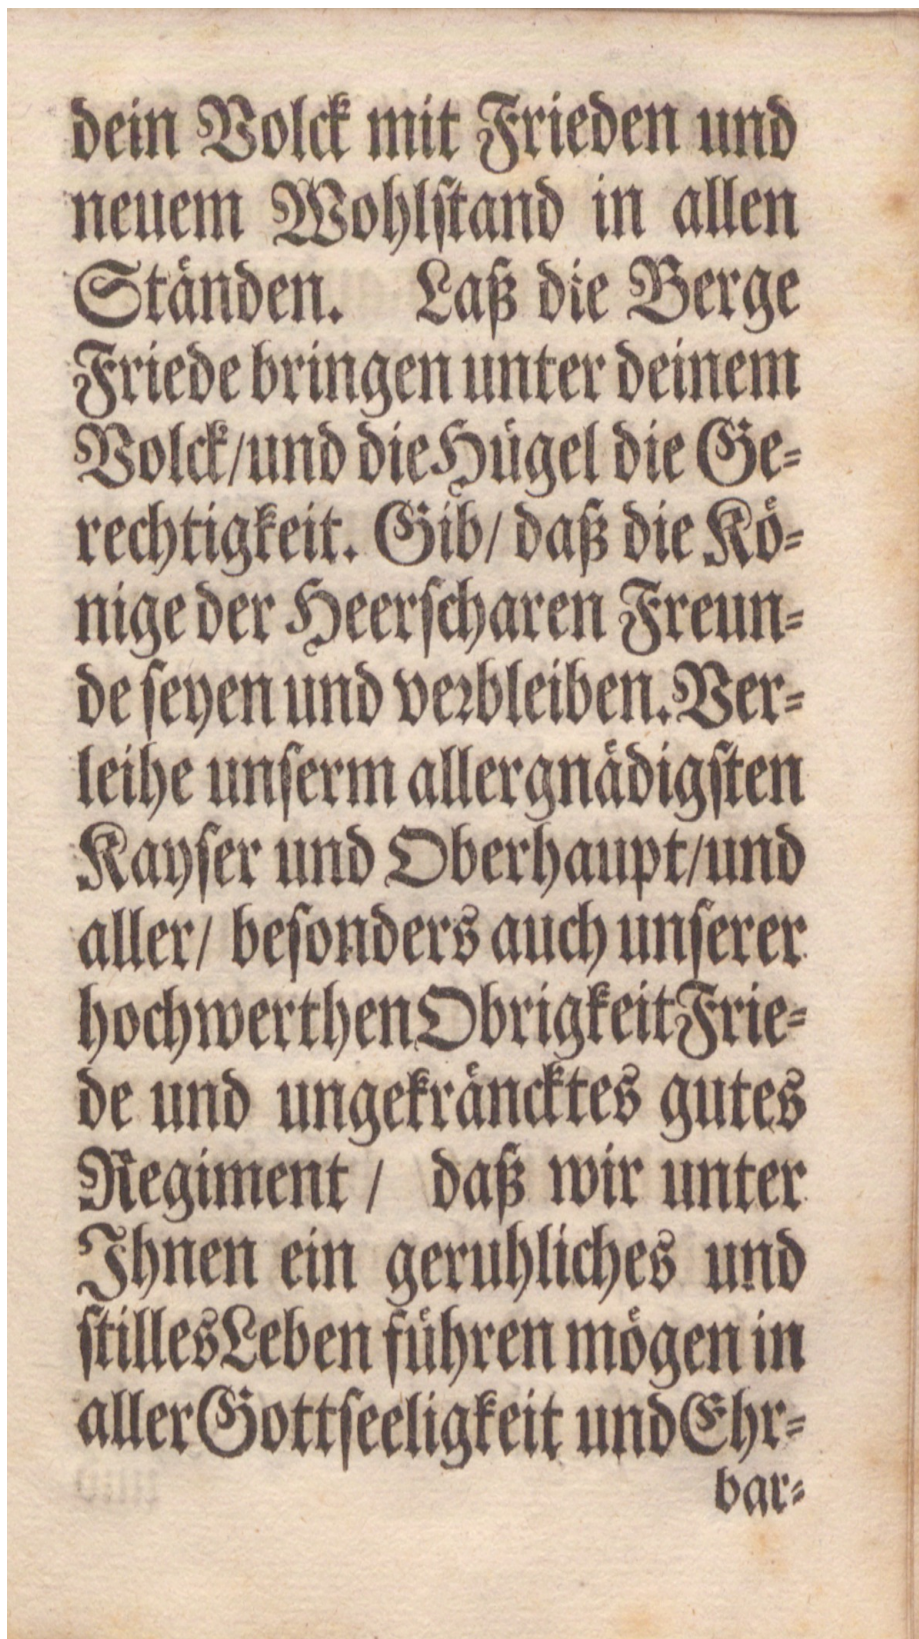 dein Volck mit Frieden und
neuem Wohlſtand in allen
Ständen. Laß die Berge
Friede bringen unter deinem
Volck/und die Hügel die Ge-
rechtigkeit. Gib/ daß die Kö-
nige der Heerſcharen Freun-
de ſeyen und veꝛbleiben. Ver-
leihe unſerm allergnädigſten
Kayſer und Oberhaupt/und
aller/ beſonders auch unſerer
hochwerthen Obrigkeit Frie-
de und ungekräncktes gutes
Regiment / daß wir unter
Ihnen ein geruhliches und
ſtilles Leben führen mögen in
aller Gottſeeligkeit und Ehr-
bar-